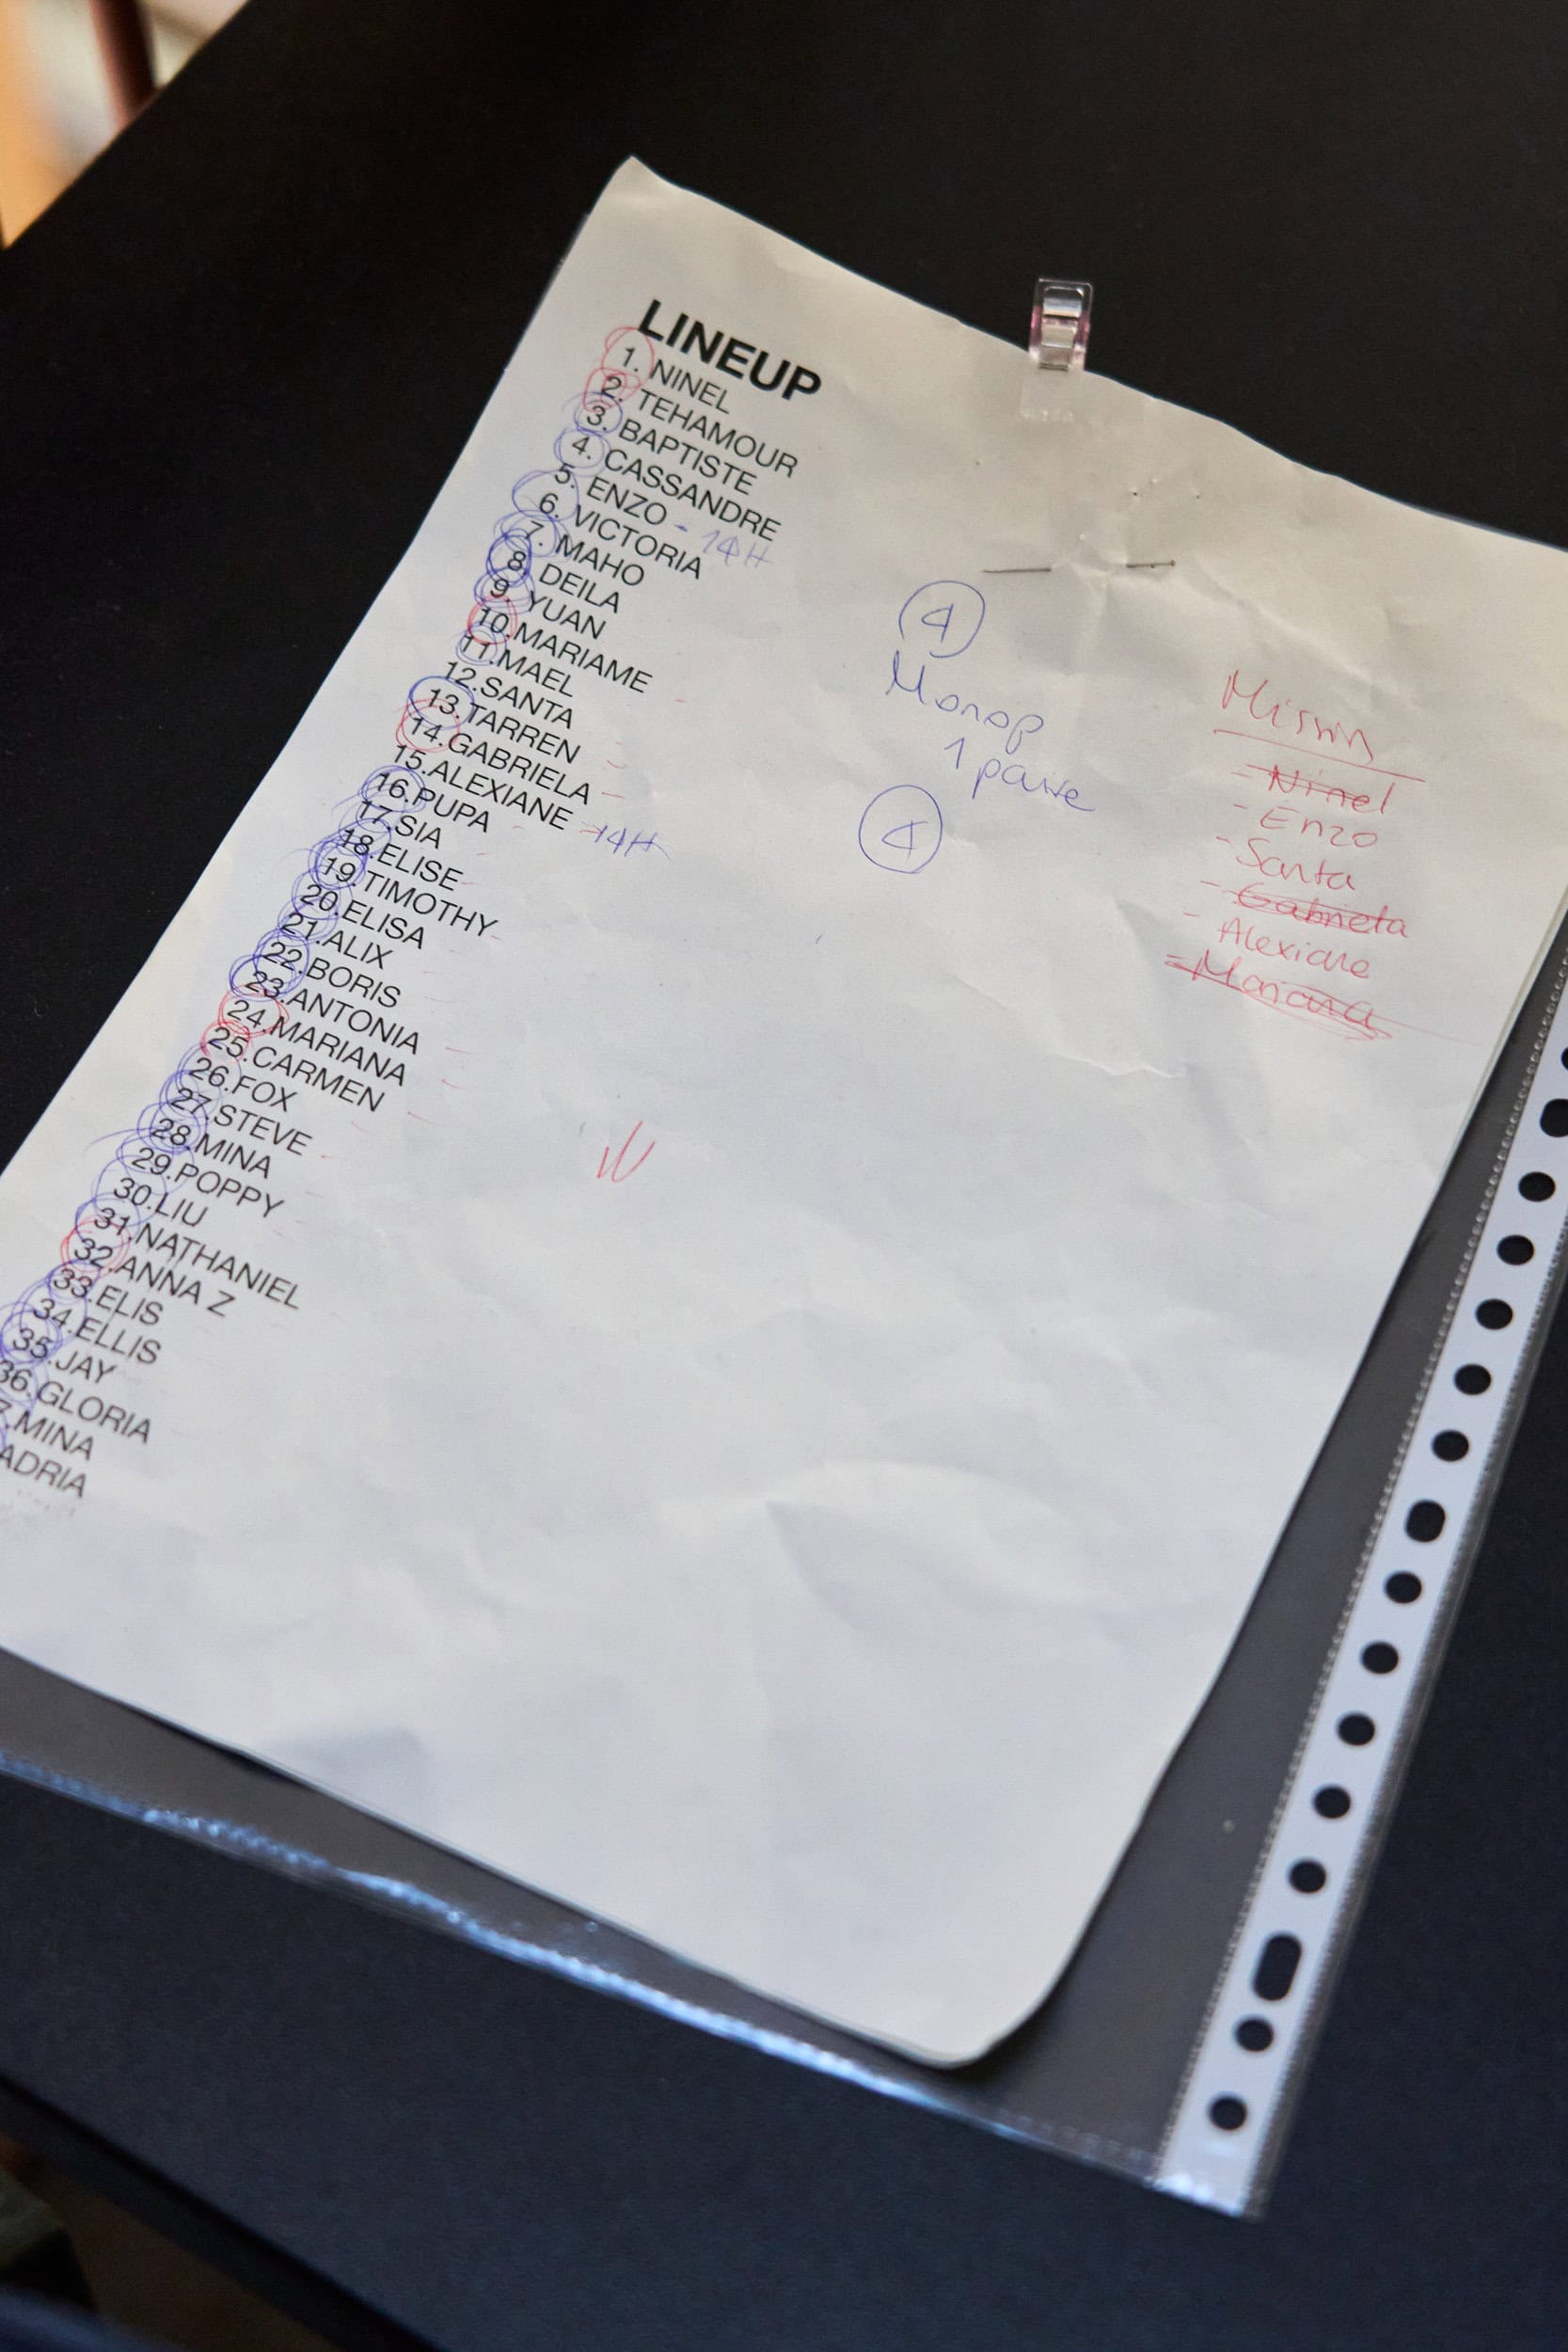 LINEUP
1. NINEL
2. TEHAMOUR
3. BAPTISTE
4. CASSANDRE
5. ENZO - 14H
6. VICTORIA
7. MAHO
8. DEILA
9. YUAN
10.MARIAME
11.MAEL
12.SANTA
13.TARREN
14.GABRIELA
15.ALEXIANE 14H
16.PUPA
17.SIA
18.ELISE
19.TIMOTHY
20.ELISA
21.ALIX
22.BORIS
23.ANTONIA
24.MARIANA
25.CARMEN
26.FOX
27.STEVE
28.MINA
29.POPPY
30.LIU
31.NATHANIEL
32.ANNA Z
33.ELIS
34.ELLIS
35.JAY
36.GLORIA
7.MINA
ADRIA
4
Monop
1 paire
4
- Ninel
- Enzo
- Santa
- Gabriela
- Alexiane
- Mariana